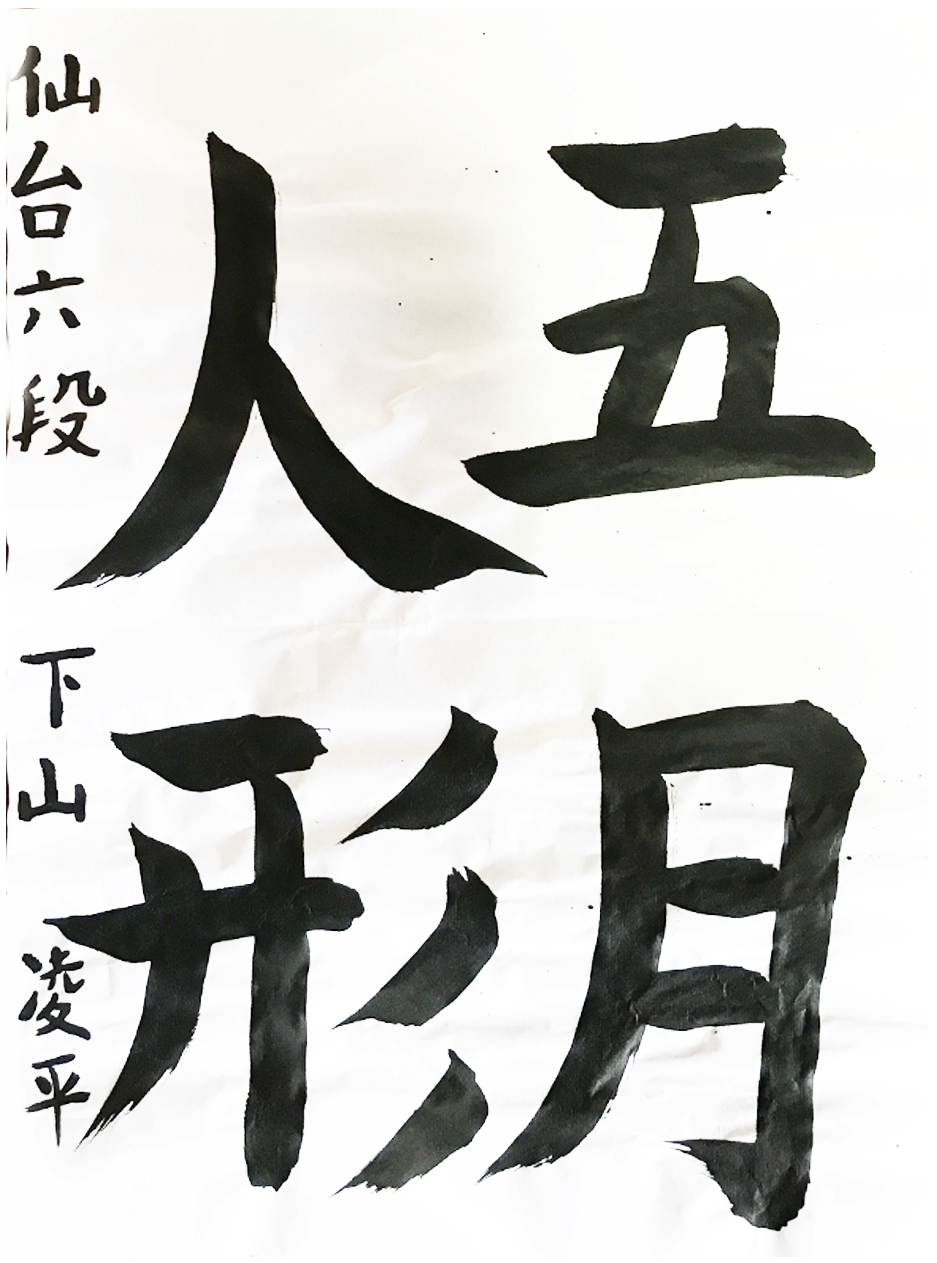 五月
人形
仙台六段 下山 凌平